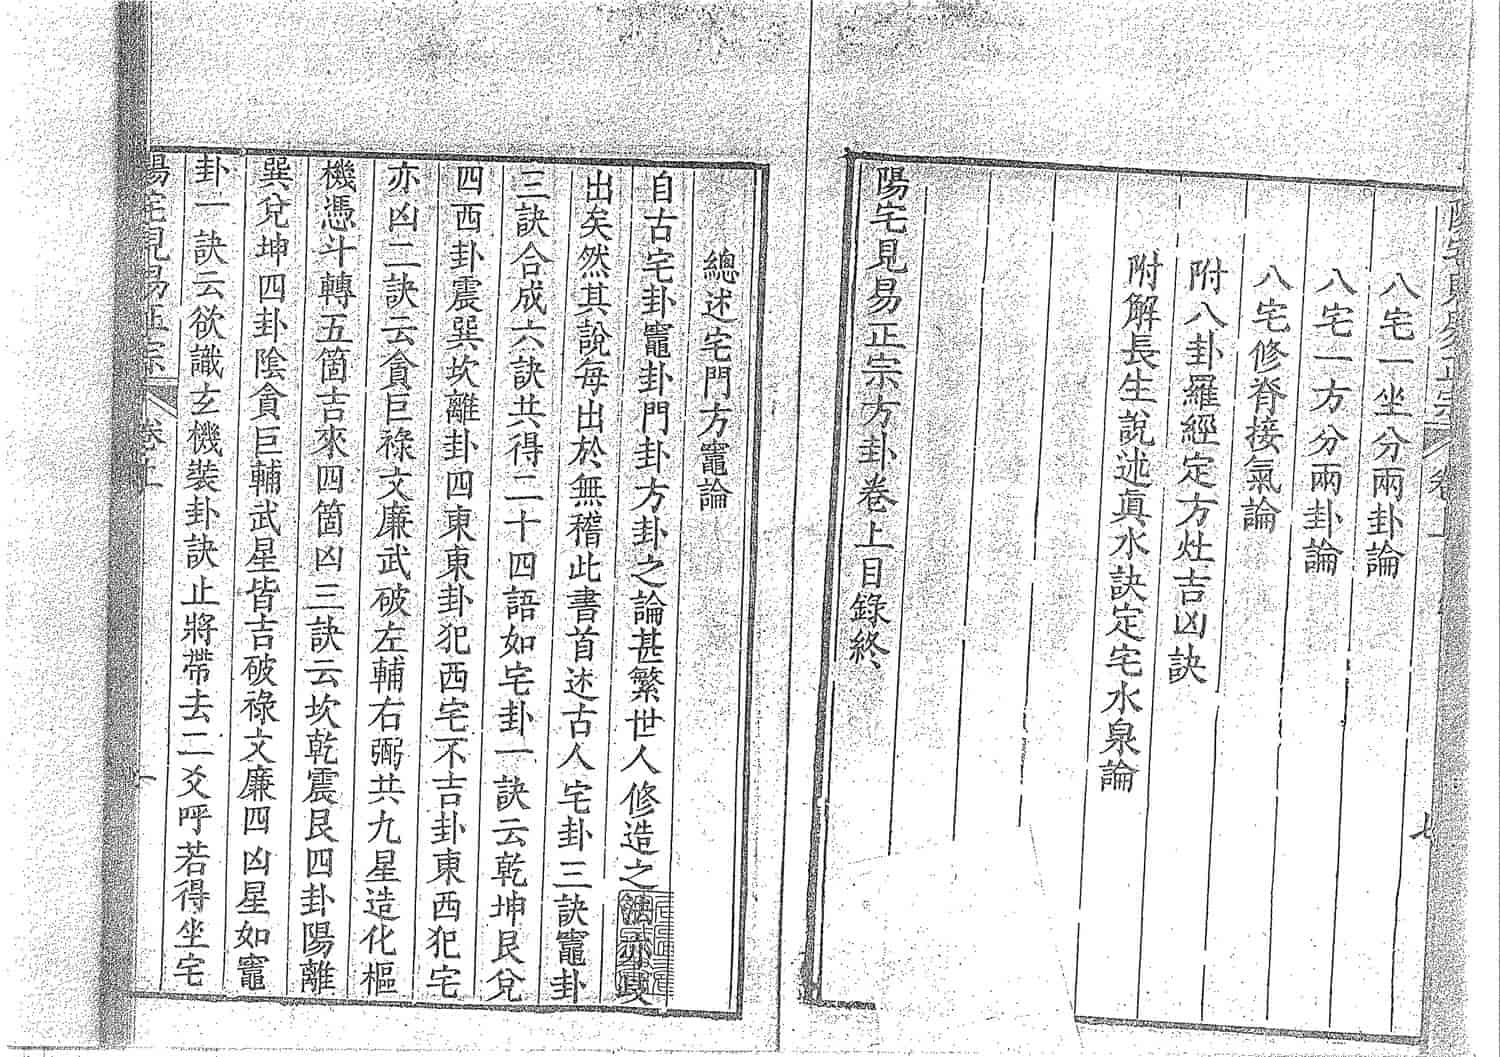 八宅一坐分兩卦論
八宅一方分兩卦論
八宅修脊接氣論
附八卦羅經定方灶吉凶訣
附解長生說述眞水訣定宅水泉論
陽宅見易正宗方卦卷上目錄終
七
總述宅門方竈論
自古宅卦竈卦門卦方卦之論甚繁世人修造之
出矣然其說每出於無稽此書首述古人宅卦三訣竈卦
三訣合成六訣共得二十四語如宅卦一訣云乾坤艮兌
四西卦震巽坎離卦四東東卦犯西宅不吉卦東西犯宅
亦凶二訣云貪巨祿文廉武破左輔右弼共九星造化樞
機憑斗轉五箇吉來四箇凶三訣云坎乾震艮四卦陽離
巽兌坤四卦陰貪巨輔武星皆吉破祿文廉四凶星如竈
卦一訣云欲識玄機裝卦訣止將帶去二爻呼若得坐宅